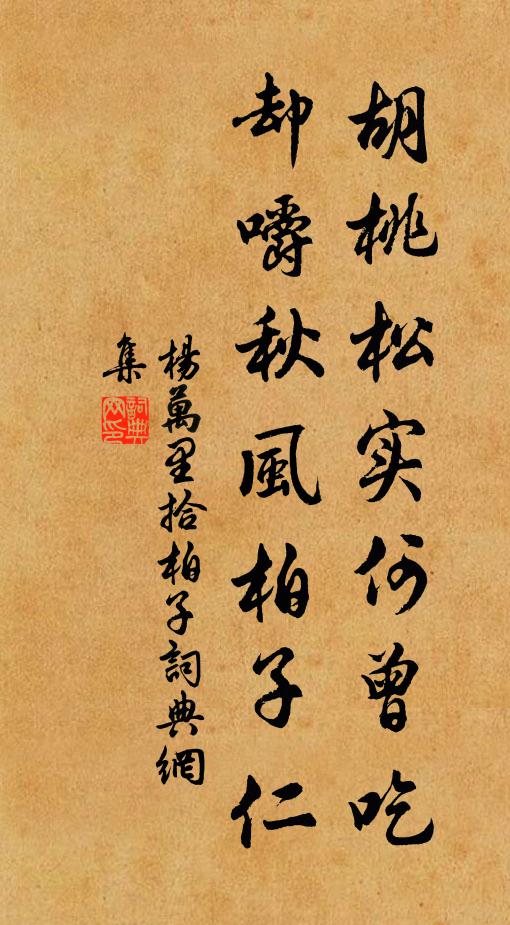 胡桃松实何曾吃
却嚼秋風柏子仁
楊萬里拾柏子詞典網
集
詞典
网印